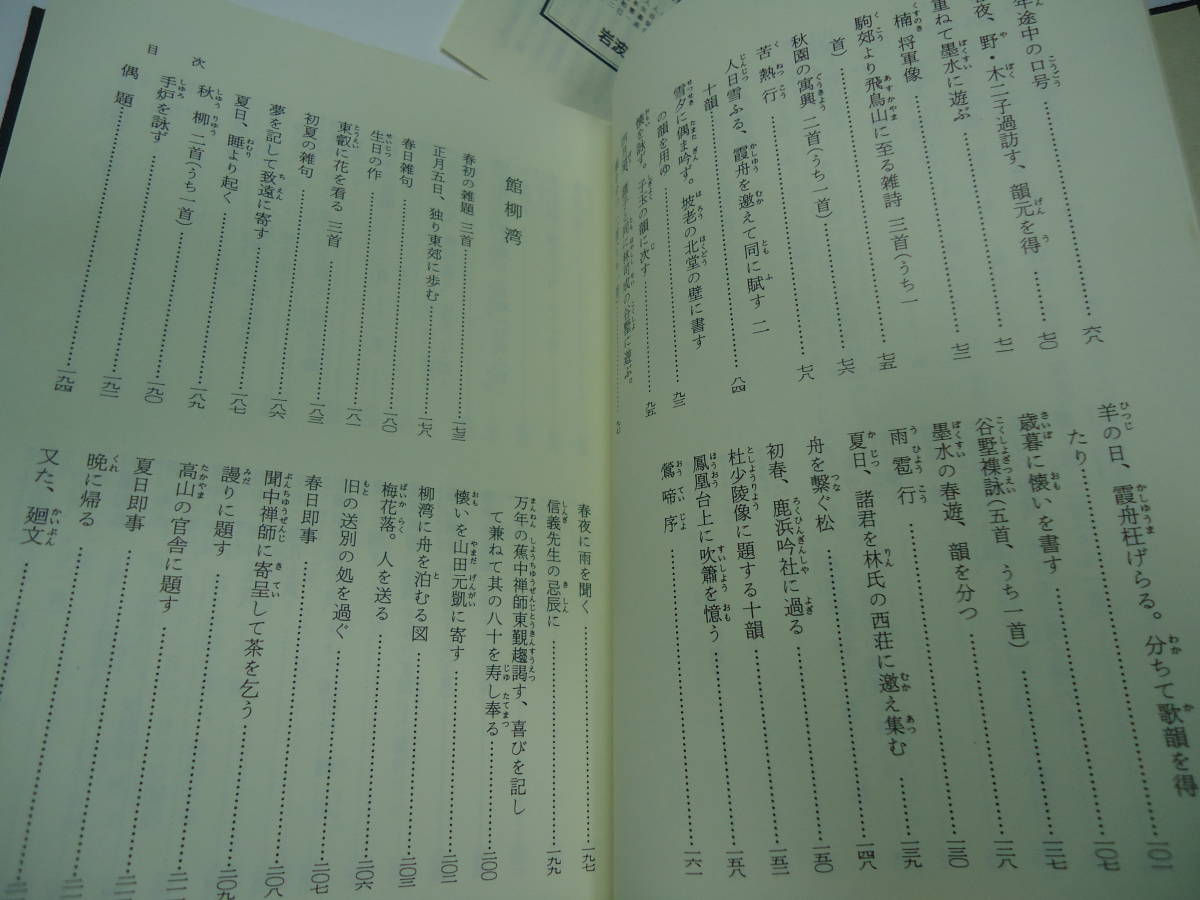 岩波
年途中の口号……六八
夜、野・木二子過訪す、韻元を得……七〇
重ねて墨水に遊ぶ……七一
楠将軍像……七三
駒郊より飛鳥山に至る雑詩 三首(うち一
首)……七五
秋園の寓興 二首(うち一首)……七六
苦熱行……七八
人日雪ふる、霞舟を邀えて同に賦す 二
十韻……八四
雪夕に偶ま吟ず。坡老の北堂の壁に書す
の韻を用ゆ……九三
懐を詠ず。子玉の韻に次す……九五
羊の日、霞舟枉げらる。分ちて歌韻を得
たり……一〇一
歳暮に懐いを書す……一〇七
谷墅襍詠(五首、うち一首)……一二七
墨水の春遊、韻を分つ……一二八
雨雹行……一三〇
夏日、諸君を林氏の西荘に邀え集む……一三九
舟を繫ぐ松……一四八
初春、鹿浜吟社に過る……一五〇
杜少陵像に題する十韻……一五二
鳳凰台上に吹簫を憶う……一五八
鶯啼序……一六一
館柳湾
春初の雑題 三首……一七三
正月五日、独り東郊に歩む……一七八
春日雑句……一八〇
生日の作……一八一
東叡に花を看る 三首……一八三
初夏の雑句……一八六
夢を記して致遠に寄す……一八七
夏日、睡より起く……一八九
秋柳 二首(うち一首)……一九〇
手炉を詠ず……一九二
偶題……一九四
目次
春夜に雨を聞く……一九七
信義先生の忌辰に……一九九
万年の蕉中禅師東覲趨謁す、喜びを記し
て兼ねて其の八十を寿し奉る……二〇〇
懐いを山田元凱に寄す……二〇二
柳湾に舟を泊むる図……二〇三
梅花落。人を送る……二〇六
旧の送別の処を過ぐ……二〇七
春日即事……二〇八
聞中禅師に寄呈して茶を乞う……二〇九
謾りに題す
高山の官舎に題す
夏日即事
晩に帰る
又た、廻文